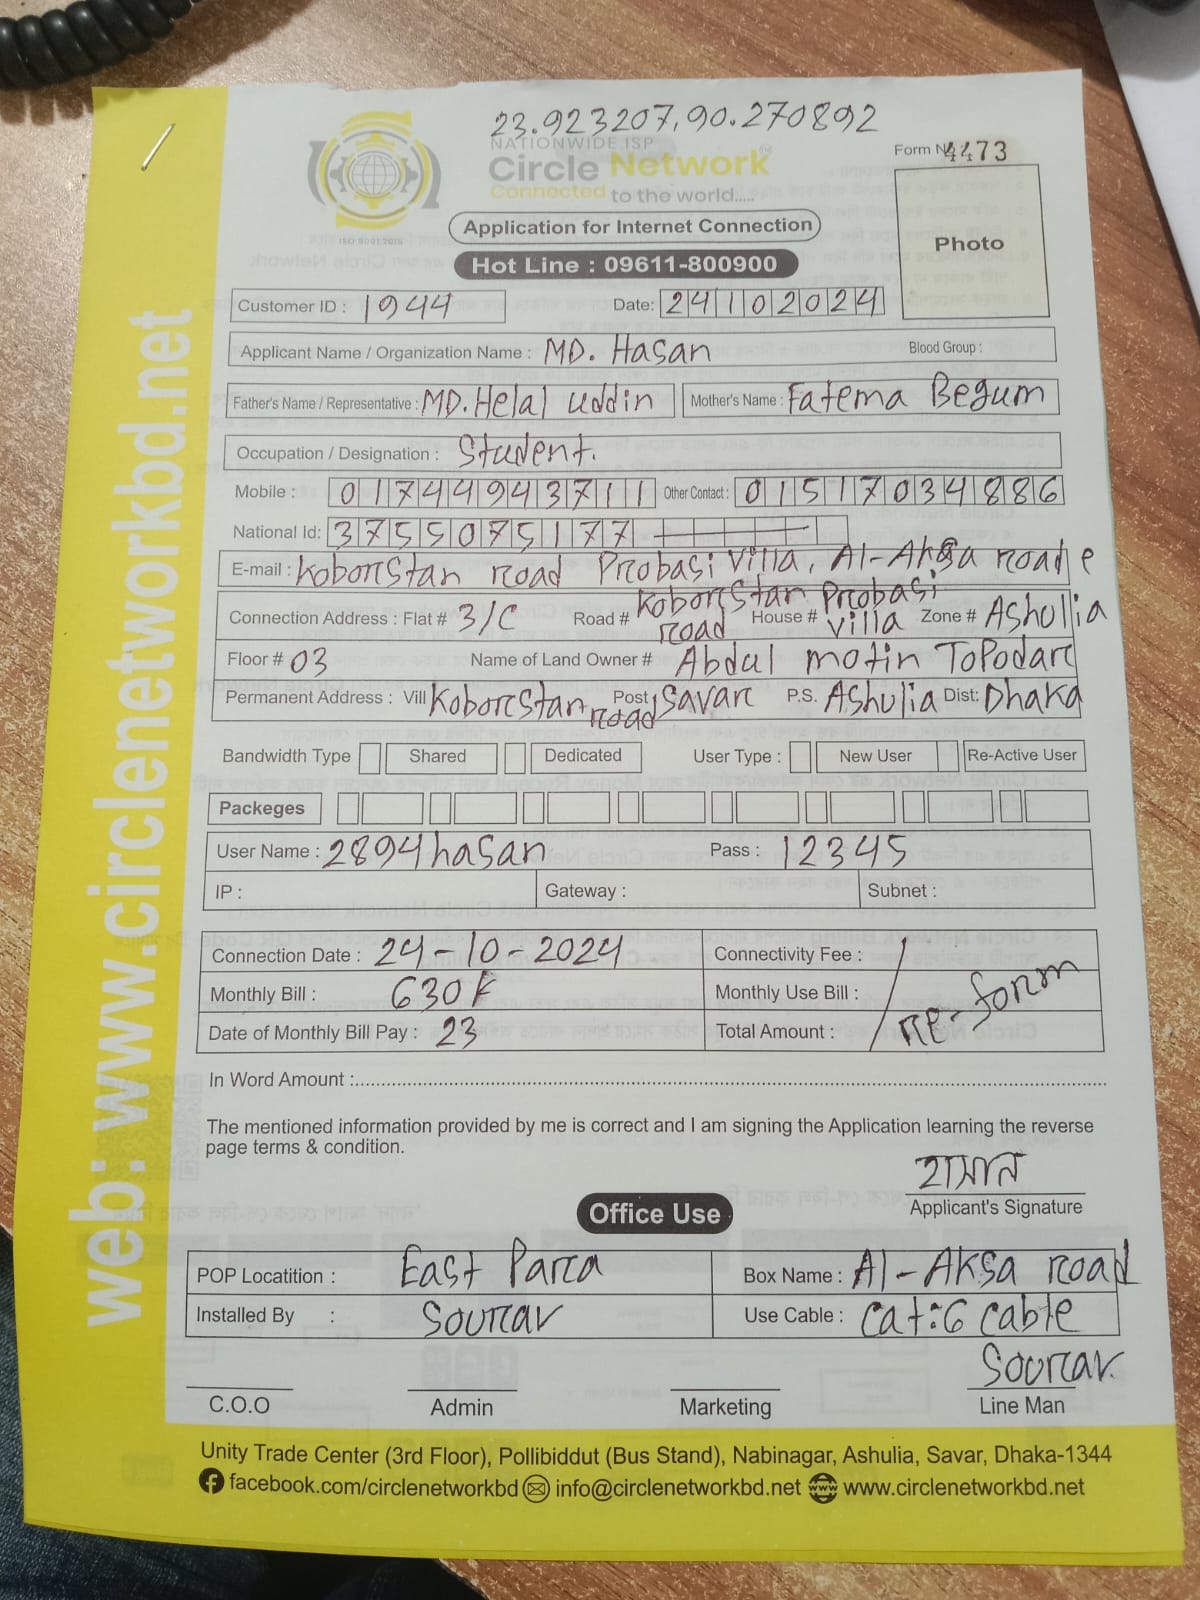 23.923207,90.270892
NATIONWIDE ISP
Circle Network
Connected to the world.....
ISO 9001:2015
Form N 4473
Photo
Application for Internet Connection
Hot Line : 09611-800900
Customer ID : 1944 Date: 24102024
Applicant Name / Organization Name : MD. Hasan Blood Group :
Father's Name / Representative : MD. Helal uddin Mother's Name : Fatema Begum
Occupation / Designation : Student.
Mobile : 01744943711 Other Contact : 01517034886
National Id: 3755075177
E-mail : Koborstan road Probasi villa, Al-Aksa road e
Connection Address : Flat # 3/C Road # Koborstan road House # Probasi villa Zone # Ashulia
Floor # 03 Name of Land Owner # Abdul motin ToPodar
Permanent Address : Vill Koborstan road Post Savar P.S. Ashulia Dist: Dhaka
Bandwidth Type Shared Dedicated User Type : New User Re-Active User
Packeges
User Name : 2894hasan Pass : 12345
IP : Gateway : Subnet :
Connection Date : 24-10-2024 Connectivity Fee :
Monthly Bill : 630 Monthly Use Bill :
Date of Monthly Bill Pay : 23 Total Amount : re-form
In Word Amount :
The mentioned information provided by me is correct and I am signing the Application learning the reverse
page terms & condition.
হাসান
Applicant's Signature
Office Use
POP Locatition : East Para Box Name : Al-Aksa road
Installed By : Sourav Use Cable : Cat:6 Cable
Sourav
C.O.O Admin Marketing Line Man
Unity Trade Center (3rd Floor), Pollibiddut (Bus Stand), Nabinagar, Ashulia, Savar, Dhaka-1344
facebook.com/circlenetworkbd info@circlenetworkbd.net www.circlenetworkbd.net
web: www.circlenetworkbd.net